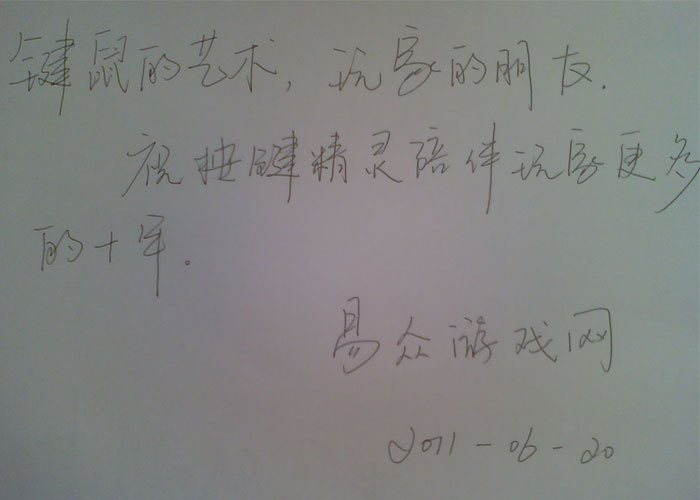 键鼠的艺术,玩家的朋友.
祝按键精灵陪伴玩家更多
的十年.
易众游戏网
2011-06-20